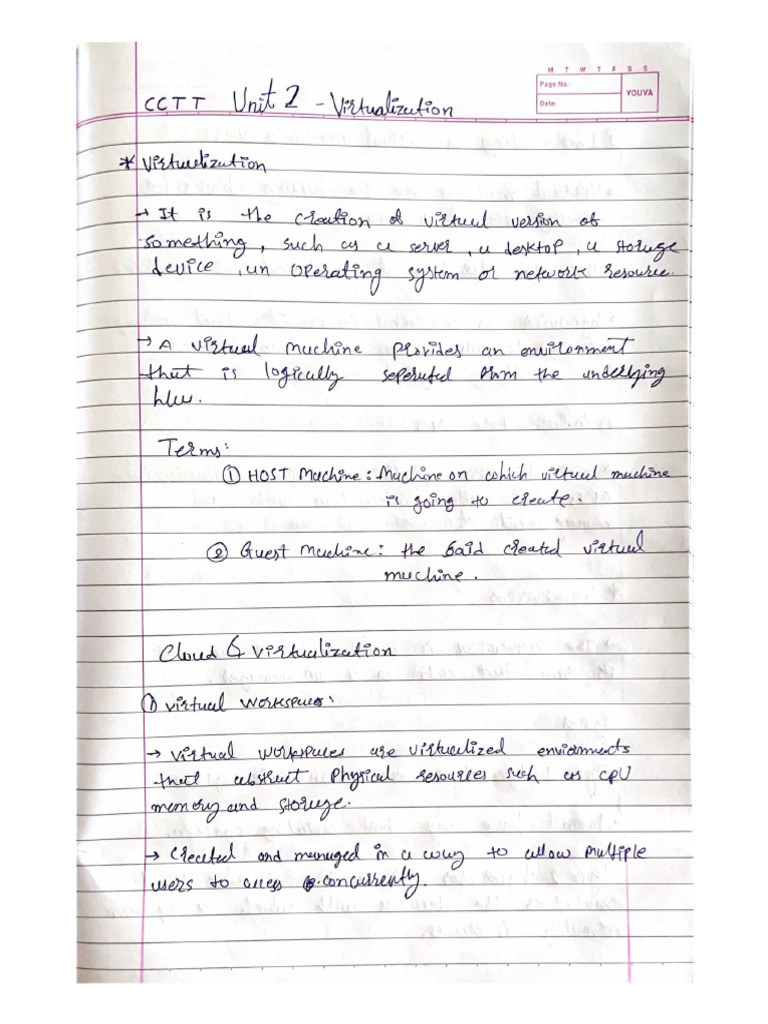 M T W T F S S
Page No.:
YOUVA
Date:
CCTT Unit 2 - Virtualization
* Virtualization
→ It is the creation of virtual version of
something, such as a server, a desktop, a storage
device, an operating system or network resource.
→ A virtual machine provides an environment
that is logically seperated from the underlying
h/w.
Terms:
① HOST Machine: Machine on which virtual machine
is going to create.
② Guest Machine: the said created virtual
machine.
Cloud & Virtualization
① Virtual Workspaces:
→ Virtual workspaces are virtualized enviornments
that abstract physical resources such as CPU
memory and storage.
→ Created and managed in a way to allow multiple
users to access concurrently.